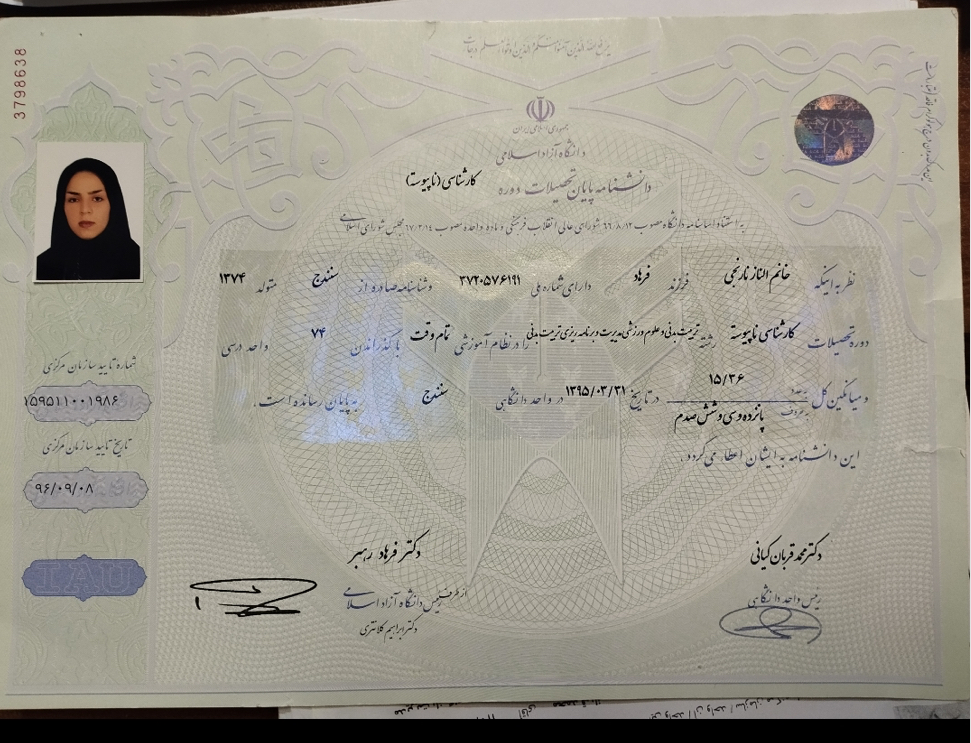 3798638
یرفع الله الذین آمنوا منکم والذین اوتوا العلم درجات
جمهوری اسلامی ایران
دانشگاه آزاد اسلامی
دانشنامه پایان تحصیلات دوره کارشناسی (ناپیوسته)
به استناد اساسنامه دانشگاه مصوب ۶۶/۸/۱۲ شورای عالی انقلاب فرهنگی و ماده واحده مصوب ۶۷/۲/۱۴ مجلس شورای اسلامی
نظر به اینکه خانم الناز نارنجی فرزند فرهاد دارای شماره ملی ۳۷۲۰۵۷۶۱۹۱ و شناسنامه صادره از سنندج متولد ۱۳۷۴
دوره تحصیلات کارشناسی ناپیوسته رشته تربیت بدنی و علوم ورزشی مدیریت و برنامه ریزی تربیت بدنی را در نظام آموزشی تمام وقت با گذراندن ۷۴ واحد درسی
و میانگین کل به عدد ۱۵/۳۶ به حروف پانزده و سی و شش صدم در تاریخ ۱۳۹۵/۰۳/۳۱ در واحد دانشگاهی سنندج به پایان رسانده است.
این دانشنامه به ایشان اعطا می گردد.
شماره تایید سازمان مرکزی
۱۵۹۵۱۱۰۰۱۹۸۶
تاریخ تایید سازمان مرکزی
۹۶/۰۹/۰۸
IAU
دکتر محمد قربان کیانی
رئیس واحد دانشگاهی
دکتر فرهاد رهبر
از طرف رئیس دانشگاه آزاد اسلامی
دکتر ابراهیم کلانتری